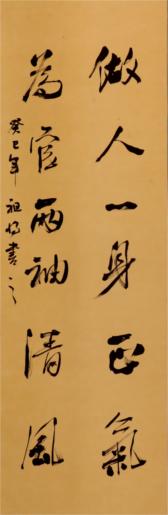 做人一身正氣
為官兩袖清風
癸巳年 祖
書